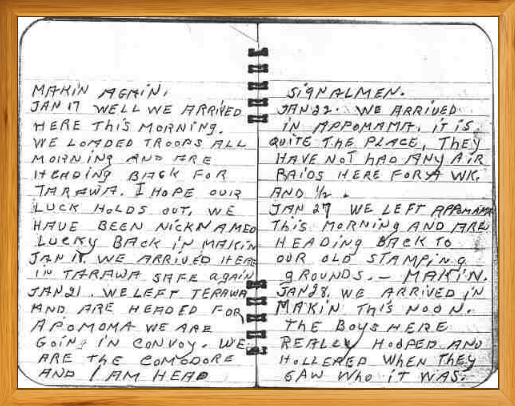 MAKIN AGAIN.
JAN 17 WELL WE ARRIVED
HERE THIS MORNING.
WE LOADED TROOPS ALL
MORNING AND ARE
HEADING BACK FOR
TARAWA. I HOPE OUR
LUCK HOLDS OUT, WE
HAVE BEEN NICKNAMED
LUCKY BACK IN MAKIN
JAN 18. WE ARRIVED HERE
IN TARAWA SAFE AGAIN
JAN 21. WE LEFT TERAWA
AND ARE HEADED FOR
APOMOMA WE ARE
GOING IN CONVOY. WE
ARE THE COMODORE
AND I AM HEAD
SIGNALMEN.
JAN 22. WE ARRIVED
IN APPOMAMA, IT IS
QUITE THE PLACE, THEY
HAVE NOT HAD ANY AIR
RAIDS HERE FOR A WK.
AND 1/2.
JAN 27 WE LEFT APPOMAMA
THIS MORNING AND ARE
HEADING BACK TO
OUR OLD STAMPING
GROUNDS. — MAKIN.
JAN 28. WE ARRIVED IN
MAKIN THIS NOON.
THE BOYS HERE
REALLY HOOPED AND
HOLLERED WHEN THEY
SAW WHO IT WAS.